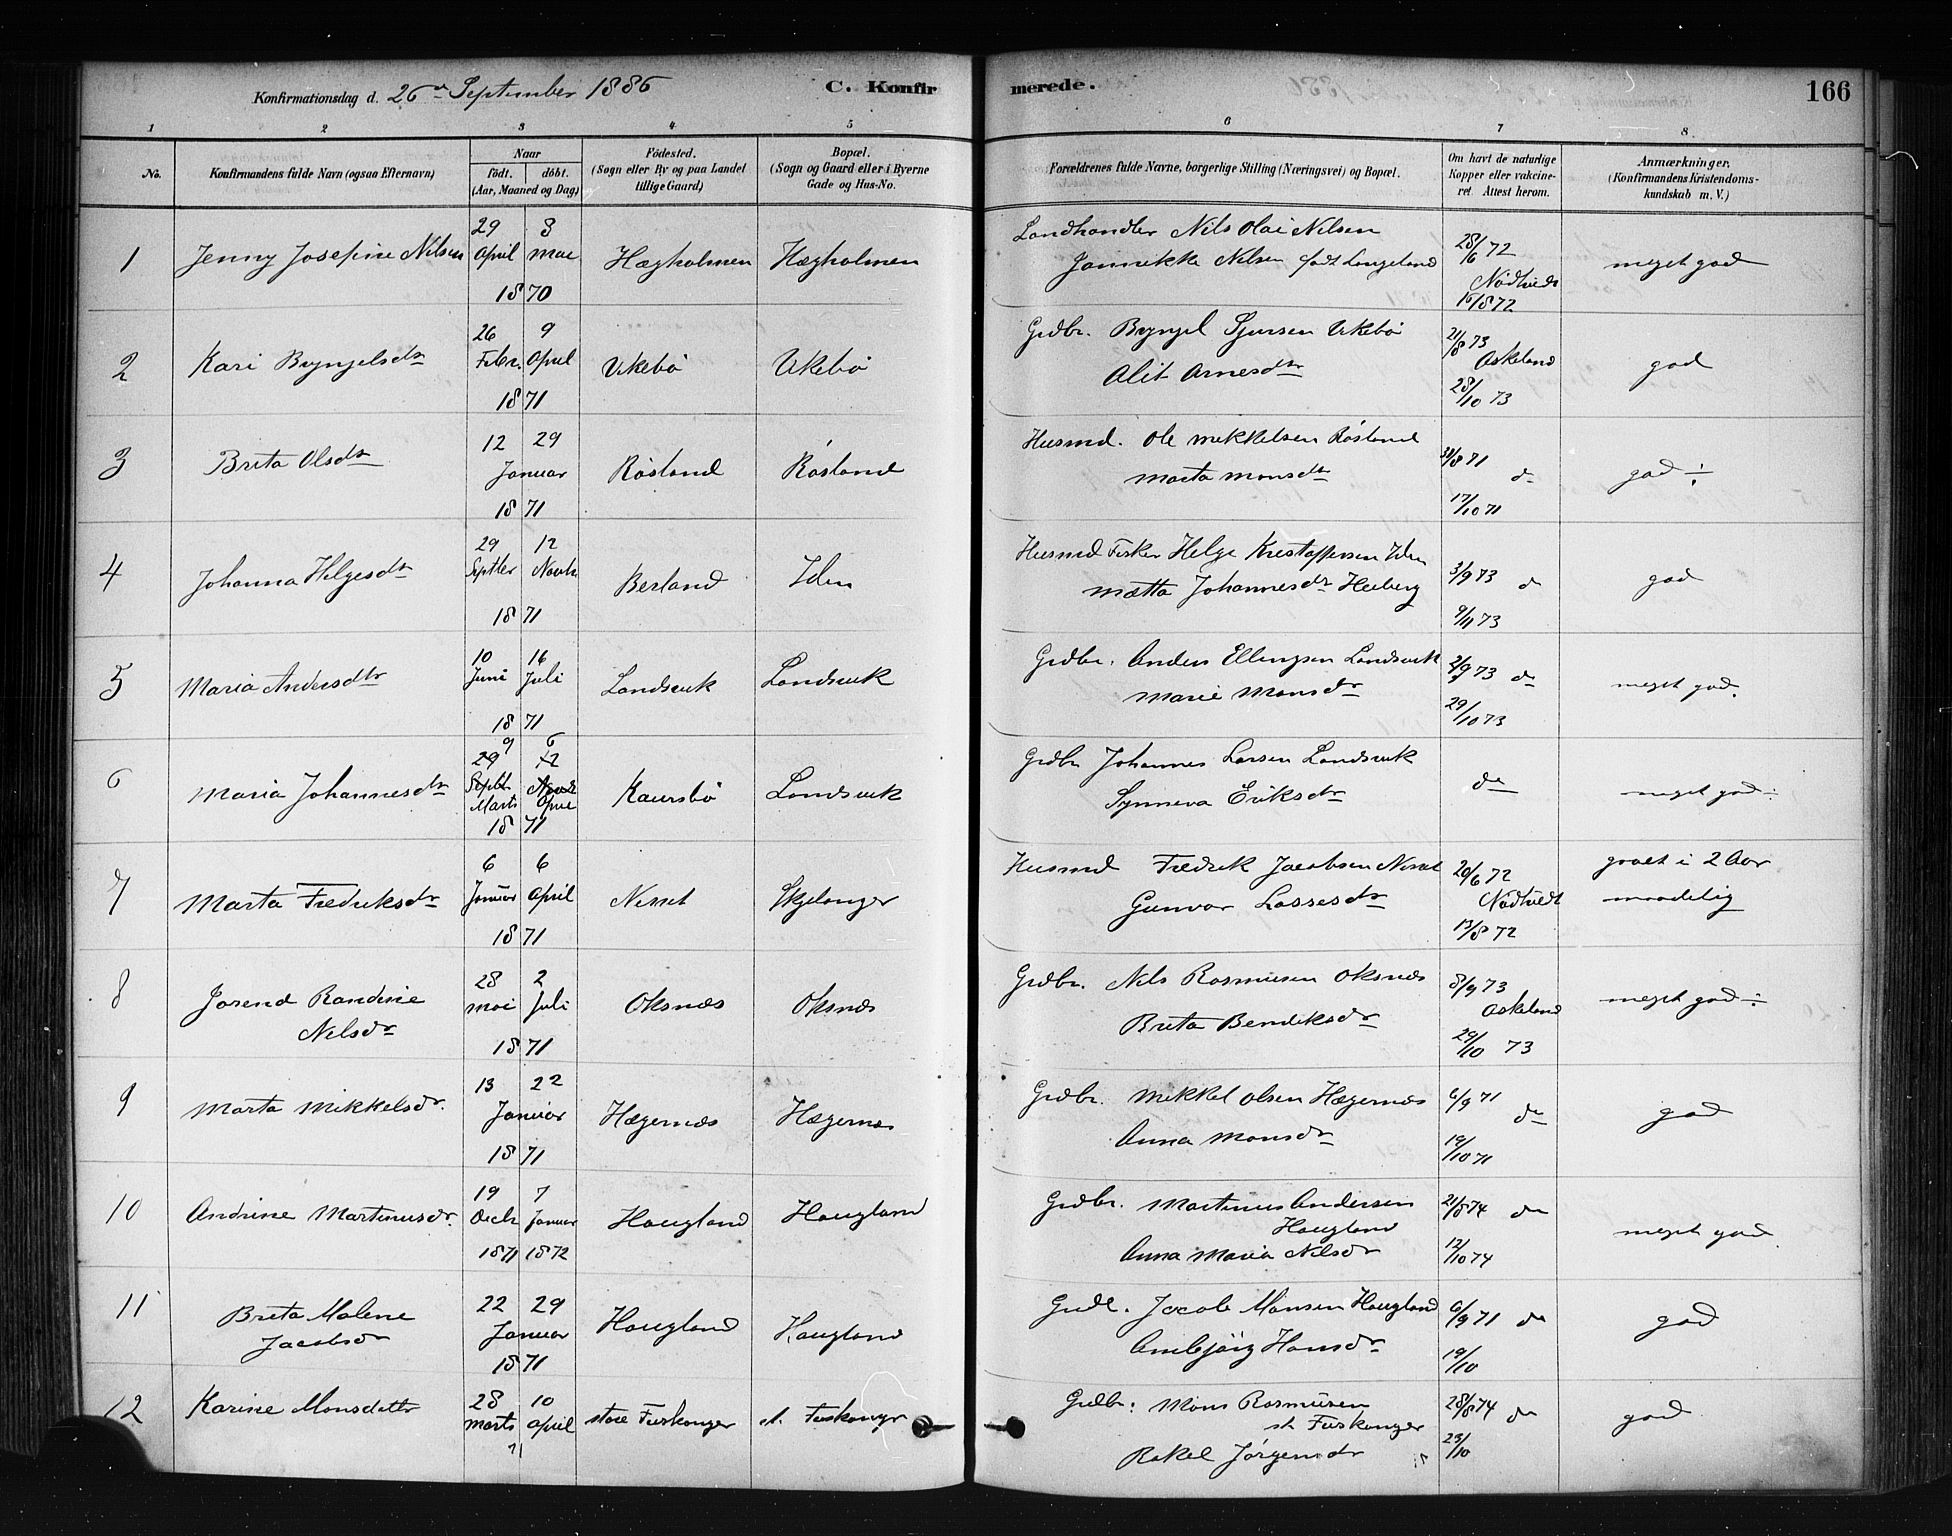 Konfirmationsdag d. 26de September 1886 C. Konfirmerede. 166
1 2 3 4 5 6 7 8
No.
Konfirmandens fulde Navn (ogsaa Efternavn)
Naar
födt. döbt.
(Aar, Maaned og Dag)
Födested.
(Sogn eller By og paa Landet
tillige Gaard)
Bopæl.
(Sogn og Gaard eller i Byerne
Gade og Hus-No.
Forældrenes fulde Navne, borgerlige Stilling (Næringsvei) og Bopæl.
Om havt de naturlige
Kopper eller vakcine-
ret Attest herom.
Anmærkninger,
(Konfirmandens Kristendoms-
kundskab m. V.)
1 Jenny Josefine Nilsen
29 April 8 Mai 1870
Hægholmen
Hægholmen
Landhandler Nils Olai Nilsen
Jannikke Nilsen født Langeland
28/6 72
Nødtvedt
1872
meget god
2 Kari Bryngelsdtr
26 Febr. 9 April 1871
Vikebö
Vikebö
Grdbr. Bryngel Sjursen Vikebö
Alit Arnesdtr
21/8 73
Askeland
28/10 73
god
3 Brita Olsdtr
12 29 Januar 1871
Røsland
Røsland
Husmd. Ole Mikkelsen Røsland
Marta Monsdtr
31/8 71 do
17/10 71
god ÷
4 Johanna Helgesdtr
29 Septbr 12 Novbr 1871
Berland
Iden
Husmd Fisker Helge Kristoffersen Iden
Mætta Johannesdr Heiberg
3/9 73 do
9/11 73
god
5 Maria Andersdtr
10 Juni 16 Juli 1871
Landsvik
Landsvik
Grdbr. Anders Ellingsen Landsvik
Marie Monsdr
2/9 73 do
29/10 73
meget god.
6 Maria Johannesdtr
9 6
29 12
Septbr Novbr
Marts April
1871
Kaursbö
Landsvik
Grdbr Johannes Larsen Landsvik
Synneva Eriksdr
do
meget god ÷
7 Marta Fredriksdr
6 Januar 6 April 1871
Nesset
Skjelanger
Husmd Fredrik Jacobsen Nesset
Gunvor Lassesdtr
20/6 72
Nødtvedt
13/8 72
gaaet i 2 Aar
maadelig
8 Jorend Randine
Nilsdr
28 Mai 2 Juli 1871
Oksnæs
Oksnæs
Grdbr. Nils Rasmusen Oksnæs
Brita Bendiksdr
8/9 73
Askeland
29/10 73
meget god ÷
9 Marta Mikkelsdr.
13 22 Januar 1871
Hægernæs
Hægernæs
Grdbr. Mikkel Olsen Hægernæs
Anna Monsdr
6/9 71 do
19/10 71
god
10 Andrine Martinusdr.
19 Decbr 1871 7 Januar 1872
Haugland
Haugland
Grdbr. Martinus Andersen
Haugland
Anna Maria Nilsdr
21/8 74 do
12/10 74
meget god.
11 Brita Malene
Jacobsdr
22 29 Januar 1871
Haugland
Haugland
Grdbr. Jacob Monsen Haugland
Ambjörg Hansdr
6/9 71 do
19/10
god
12 Karine Monsdatter
28 Marts 10 April 71
store Furskonger
st. Furskonger
Grdbr. Mons Rasmusen
st Furskonger
Rakel Jörgensdr
28/8 74 do
23/10
god